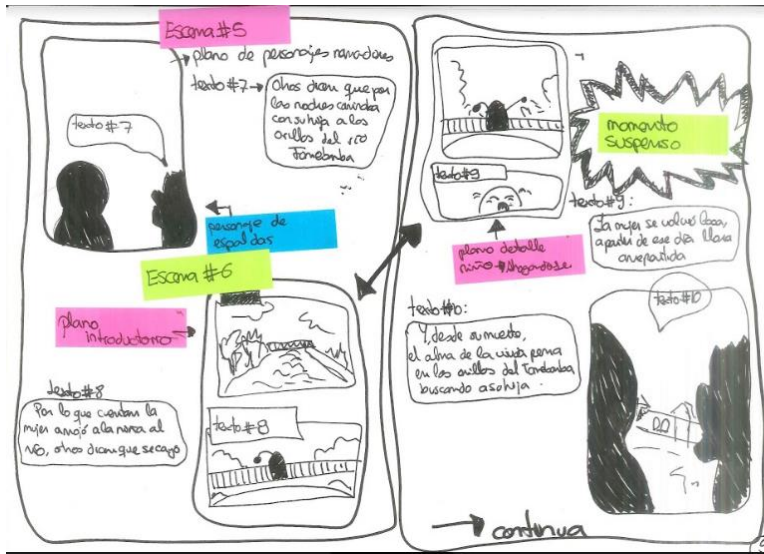 Escena #5
plano de personajes narradores
texto #7
Otros dicen que por
las noches caminaba
con su hija a las
orillas del río
Tomebamba
texto #7
personaje de
espaldas
Escena #6
plano
introductorio
texto #8
Por lo que cuentan la
mujer arrojó a la nena al
río, otros dicen que se cayó
texto #8
momento
suspenso
texto #9
plano detalle
niño ahogandose
texto #9:
La mujer se volvió loca,
a partir de ese día llora
arrepentida
texto #10:
Y, desde su muerte,
el alma de la viuda pena
en las orillas del Tomebamba
buscando a su hija.
texto #10
continua